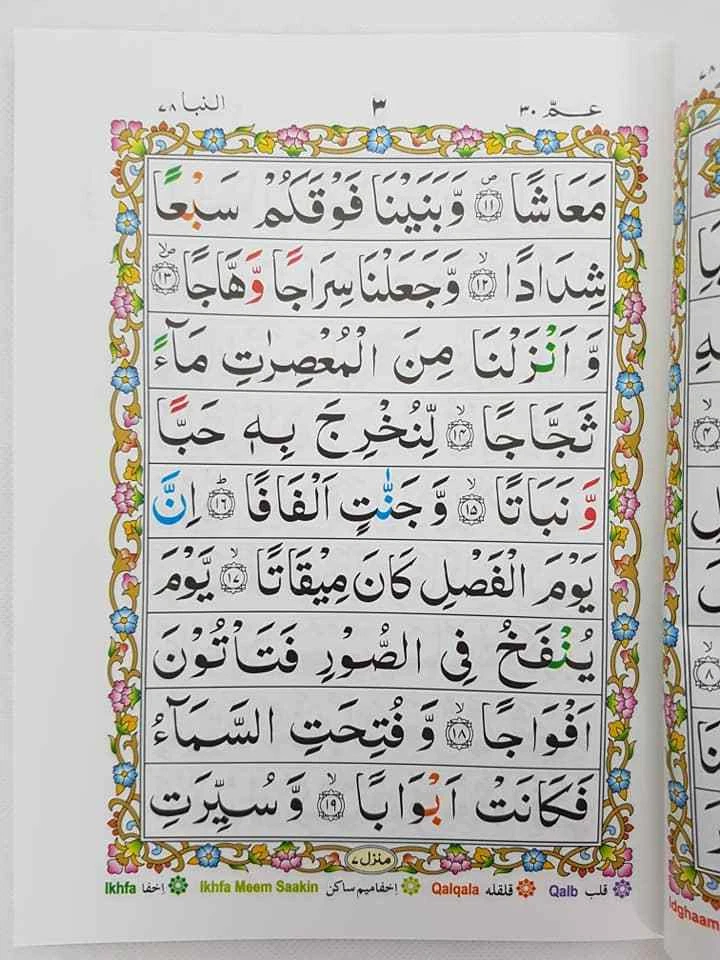 عـمّ ٣٠ ٣ النبا ٧٨
مَعَاشًا ۝۱۱ ۙص وَّ بَنَيْنَا فَوْقَكُمْ سَبْعًا
شِدَادًا ۝۱۲ ۙ وَّ جَعَلْنَا سِرَاجًا وَّهَّاجًا ۝۱۳ ۙص
وَّ اَنْزَلْنَا مِنَ الْمُعْصِرٰتِ مَآءً
ثَجَّاجًا ۝۱۴ ۙ لِّنُخْرِجَ بِهٖ حَبًّا
وَّ نَبَاتًا ۝۱۵ ۙ وَّ جَنّٰتٍ اَلْفَافًا ۝۱۶ ؕ اِنَّ
يَوْمَ الْفَصْلِ كَانَ مِيْقَاتًا ۝۱۷ ۙ يَّوْمَ
يُنْفَخُ فِي الصُّوْرِ فَتَاْتُوْنَ
اَفْوَاجًا ۝۱۸ ۙ وَّ فُتِحَتِ السَّمَآءُ
فَكَانَتْ اَبْوَابًا ۝۱۹ ۙ وَّ سُيِّرَتِ
منزل ٧
Ikhfa اخفا Ikhfa Meem Saakin اخفامیم ساکن Qalqala قلقله Qalb قلب
Idghaam